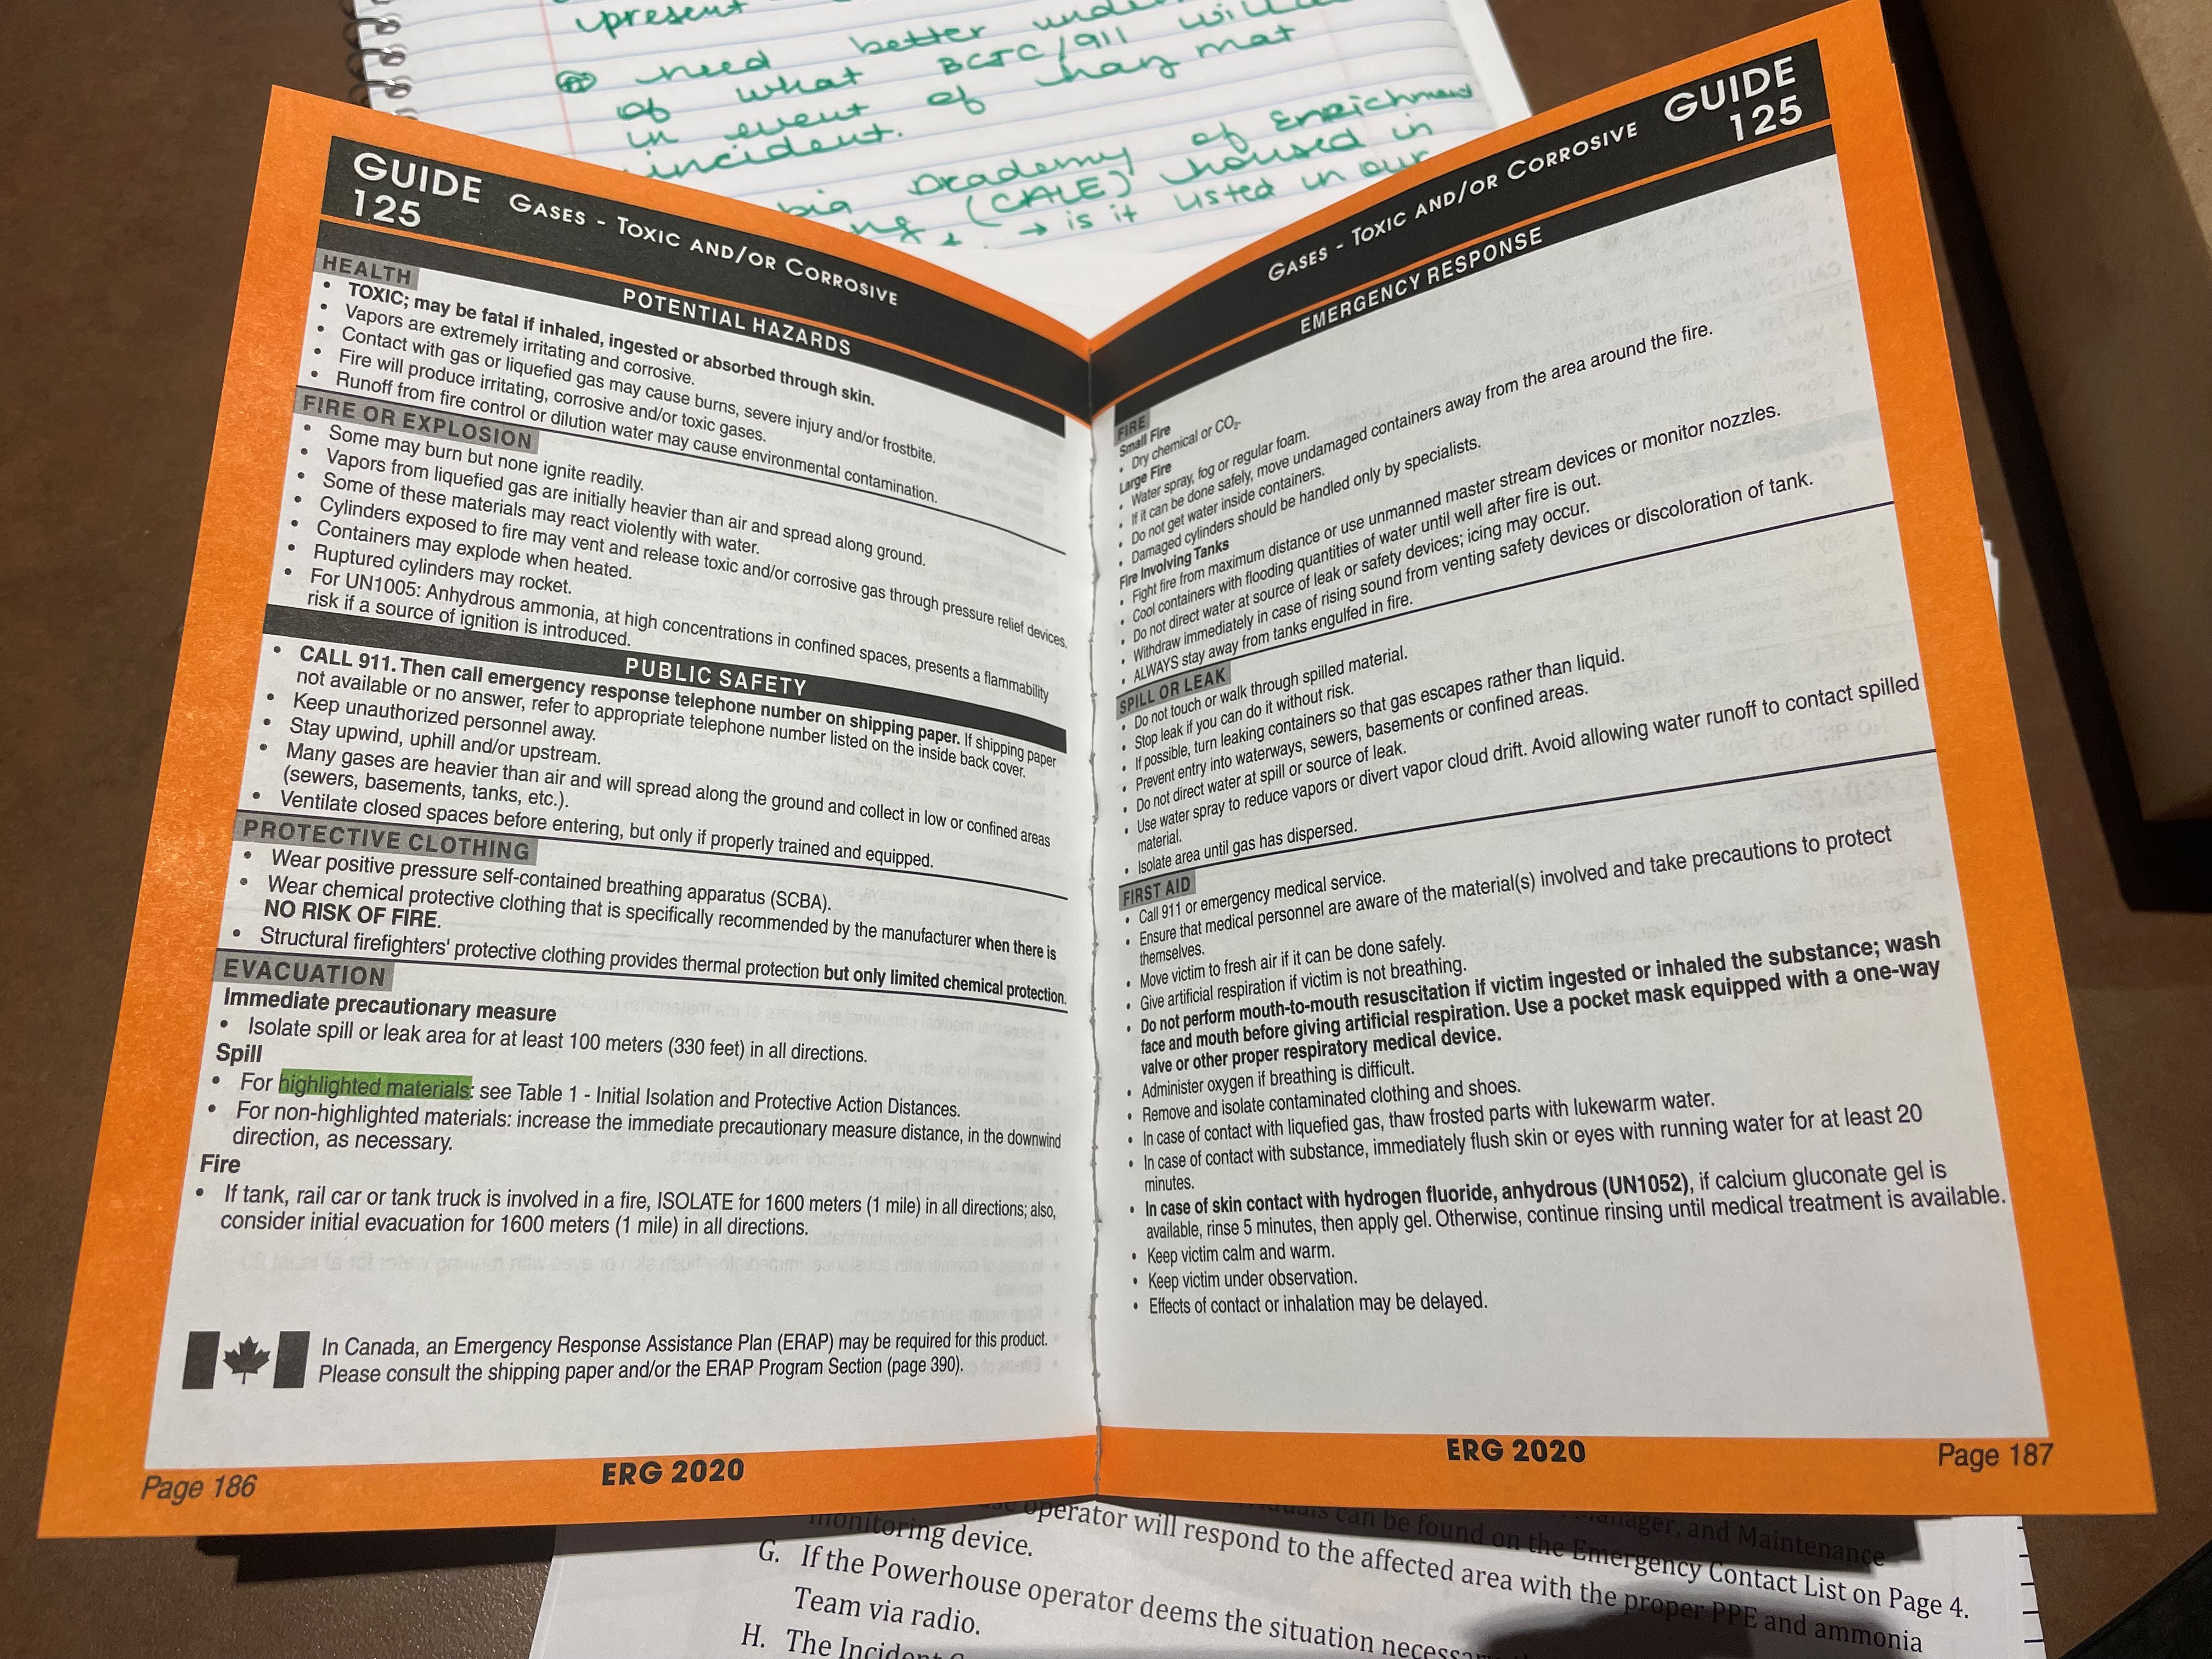 present
need better
of what BCTC/911 will
in event of haz mat
incident.
Academy of Enrichment
(CALE) housed in
→ is it listed in our
GUIDE
125
GASES - TOXIC AND/OR CORROSIVE
POTENTIAL HAZARDS
HEALTH
• TOXIC; may be fatal if inhaled, ingested or absorbed through skin.
• Vapors are extremely irritating and corrosive.
• Contact with gas or liquefied gas may cause burns, severe injury and/or frostbite.
• Fire will produce irritating, corrosive and/or toxic gases.
• Runoff from fire control or dilution water may cause environmental contamination.
FIRE OR EXPLOSION
• Some may burn but none ignite readily.
• Vapors from liquefied gas are initially heavier than air and spread along ground.
• Some of these materials may react violently with water.
• Cylinders exposed to fire may vent and release toxic and/or corrosive gas through pressure relief devices.
• Containers may explode when heated.
• Ruptured cylinders may rocket.
• For UN1005: Anhydrous ammonia, at high concentrations in confined spaces, presents a flammability
risk if a source of ignition is introduced.
PUBLIC SAFETY
• CALL 911. Then call emergency response telephone number on shipping paper. If shipping paper
not available or no answer, refer to appropriate telephone number listed on the inside back cover.
• Keep unauthorized personnel away.
• Stay upwind, uphill and/or upstream.
• Many gases are heavier than air and will spread along the ground and collect in low or confined areas
(sewers, basements, tanks, etc.).
• Ventilate closed spaces before entering, but only if properly trained and equipped.
PROTECTIVE CLOTHING
• Wear positive pressure self-contained breathing apparatus (SCBA).
• Wear chemical protective clothing that is specifically recommended by the manufacturer when there is
NO RISK OF FIRE.
• Structural firefighters' protective clothing provides thermal protection but only limited chemical protection.
EVACUATION
Immediate precautionary measure
• Isolate spill or leak area for at least 100 meters (330 feet) in all directions.
Spill
• For highlighted materials: see Table 1 - Initial Isolation and Protective Action Distances.
• For non-highlighted materials: increase the immediate precautionary measure distance, in the downwind
direction, as necessary.
Fire
• If tank, rail car or tank truck is involved in a fire, ISOLATE for 1600 meters (1 mile) in all directions; also,
consider initial evacuation for 1600 meters (1 mile) in all directions.
In Canada, an Emergency Response Assistance Plan (ERAP) may be required for this product.
Please consult the shipping paper and/or the ERAP Program Section (page 390).
Page 186
ERG 2020
GASES - TOXIC AND/OR CORROSIVE
GUIDE
125
EMERGENCY RESPONSE
FIRE
Small Fire
• Dry chemical or CO2.
Large Fire
• Water spray, fog or regular foam.
• If it can be done safely, move undamaged containers away from the area around the fire.
• Do not get water inside containers.
• Damaged cylinders should be handled only by specialists.
Fire Involving Tanks
• Fight fire from maximum distance or use unmanned master stream devices or monitor nozzles.
• Cool containers with flooding quantities of water until well after fire is out.
• Do not direct water at source of leak or safety devices; icing may occur.
• Withdraw immediately in case of rising sound from venting safety devices or discoloration of tank.
• ALWAYS stay away from tanks engulfed in fire.
SPILL OR LEAK
• Do not touch or walk through spilled material.
• Stop leak if you can do it without risk.
• If possible, turn leaking containers so that gas escapes rather than liquid.
• Prevent entry into waterways, sewers, basements or confined areas.
• Do not direct water at spill or source of leak.
• Use water spray to reduce vapors or divert vapor cloud drift. Avoid allowing water runoff to contact spilled
material.
• Isolate area until gas has dispersed.
FIRST AID
• Call 911 or emergency medical service.
• Ensure that medical personnel are aware of the material(s) involved and take precautions to protect
themselves.
• Move victim to fresh air if it can be done safely.
• Give artificial respiration if victim is not breathing.
• Do not perform mouth-to-mouth resuscitation if victim ingested or inhaled the substance; wash
face and mouth before giving artificial respiration. Use a pocket mask equipped with a one-way
valve or other proper respiratory medical device.
• Administer oxygen if breathing is difficult.
• Remove and isolate contaminated clothing and shoes.
• In case of contact with liquefied gas, thaw frosted parts with lukewarm water.
• In case of contact with substance, immediately flush skin or eyes with running water for at least 20
minutes.
• In case of skin contact with hydrogen fluoride, anhydrous (UN1052), if calcium gluconate gel is
available, rinse 5 minutes, then apply gel. Otherwise, continue rinsing until medical treatment is available.
• Keep victim calm and warm.
• Keep victim under observation.
• Effects of contact or inhalation may be delayed.
ERG 2020
Page 187
and Maintenance
can be found on the Emergency Contact List on Page 4.
operator will respond to the affected area with the proper PPE and ammonia
monitoring device.
G. If the Powerhouse operator deems the situation
Team via radio.
H. The